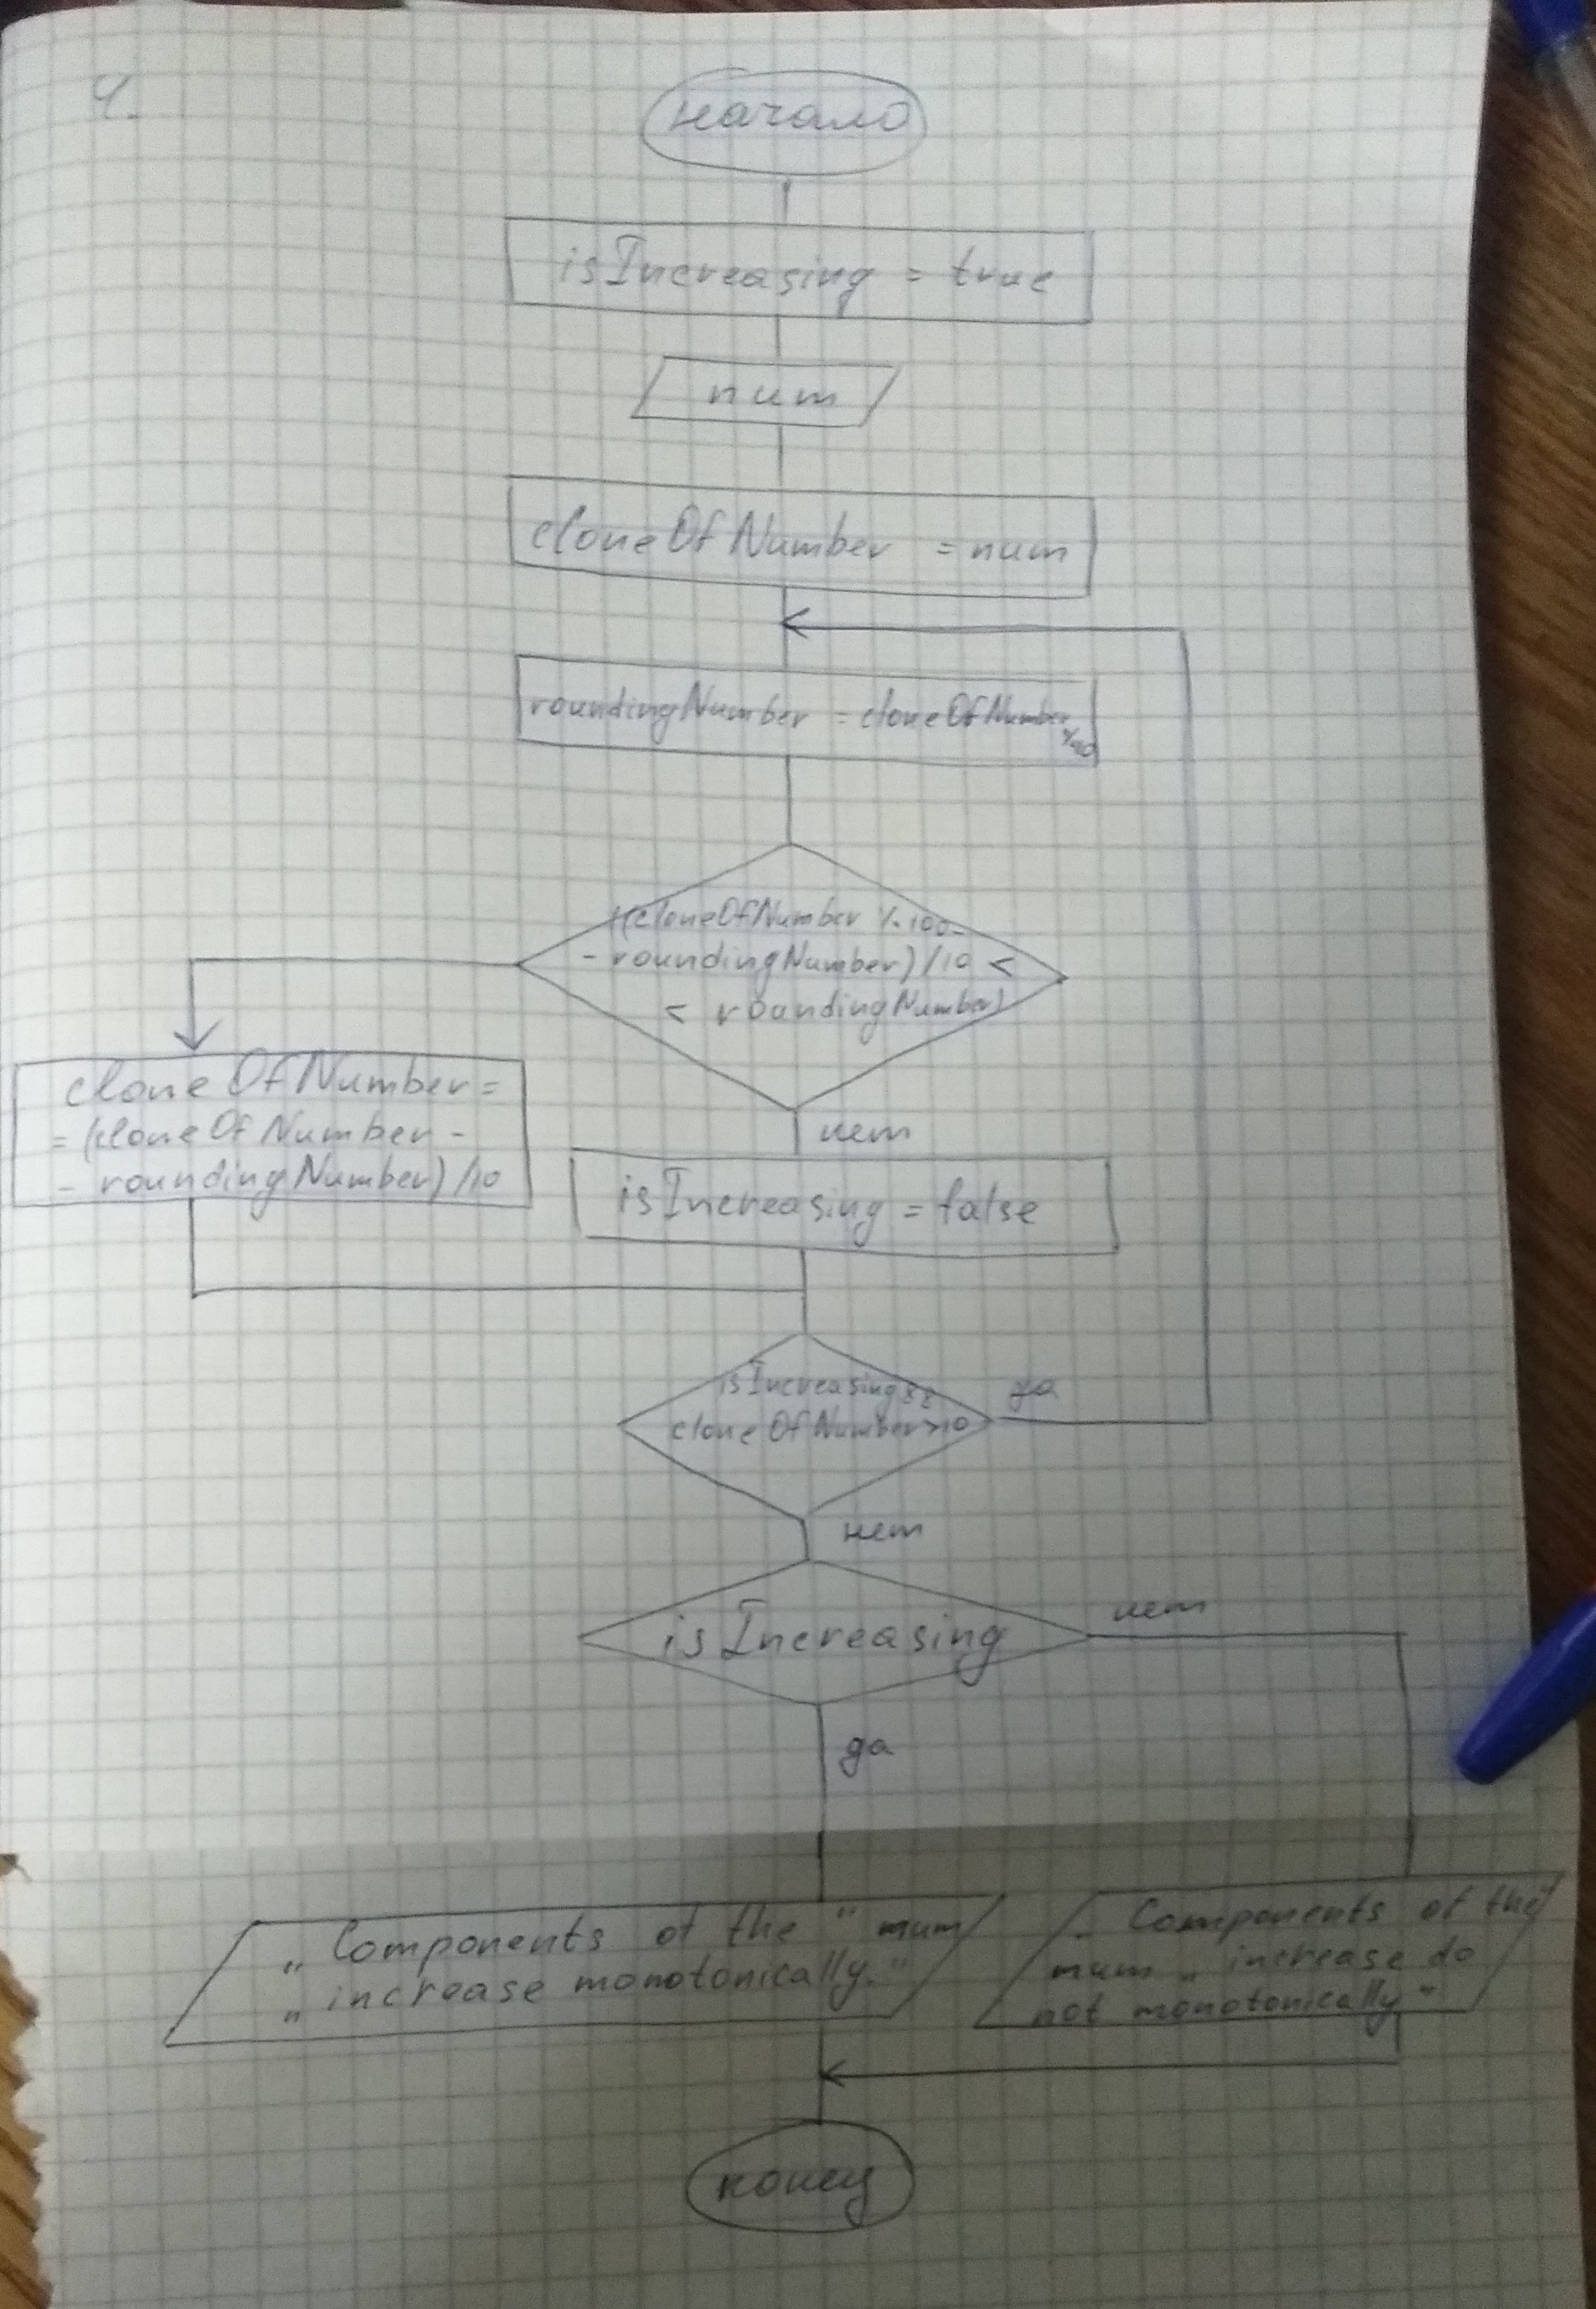 4.
начало
isIncreasing = true
num
cloneOfNumber = num
roundingNumber = cloneOfNumber
%10
((cloneOfNumber % 100 -
- roundingNumber) /10 <
< roundingNumber)
cloneOfNumber =
= (cloneOfNumber -
- roundingNumber) /10
нет
isIncreasing = false
isIncreasing &&
cloneOfNumber > 10
да
нет
isIncreasing
нет
да
„ Components of the " mum
„ increase monotonically."
„ Components of the"
mum „ increase do
not monotonically"
конец